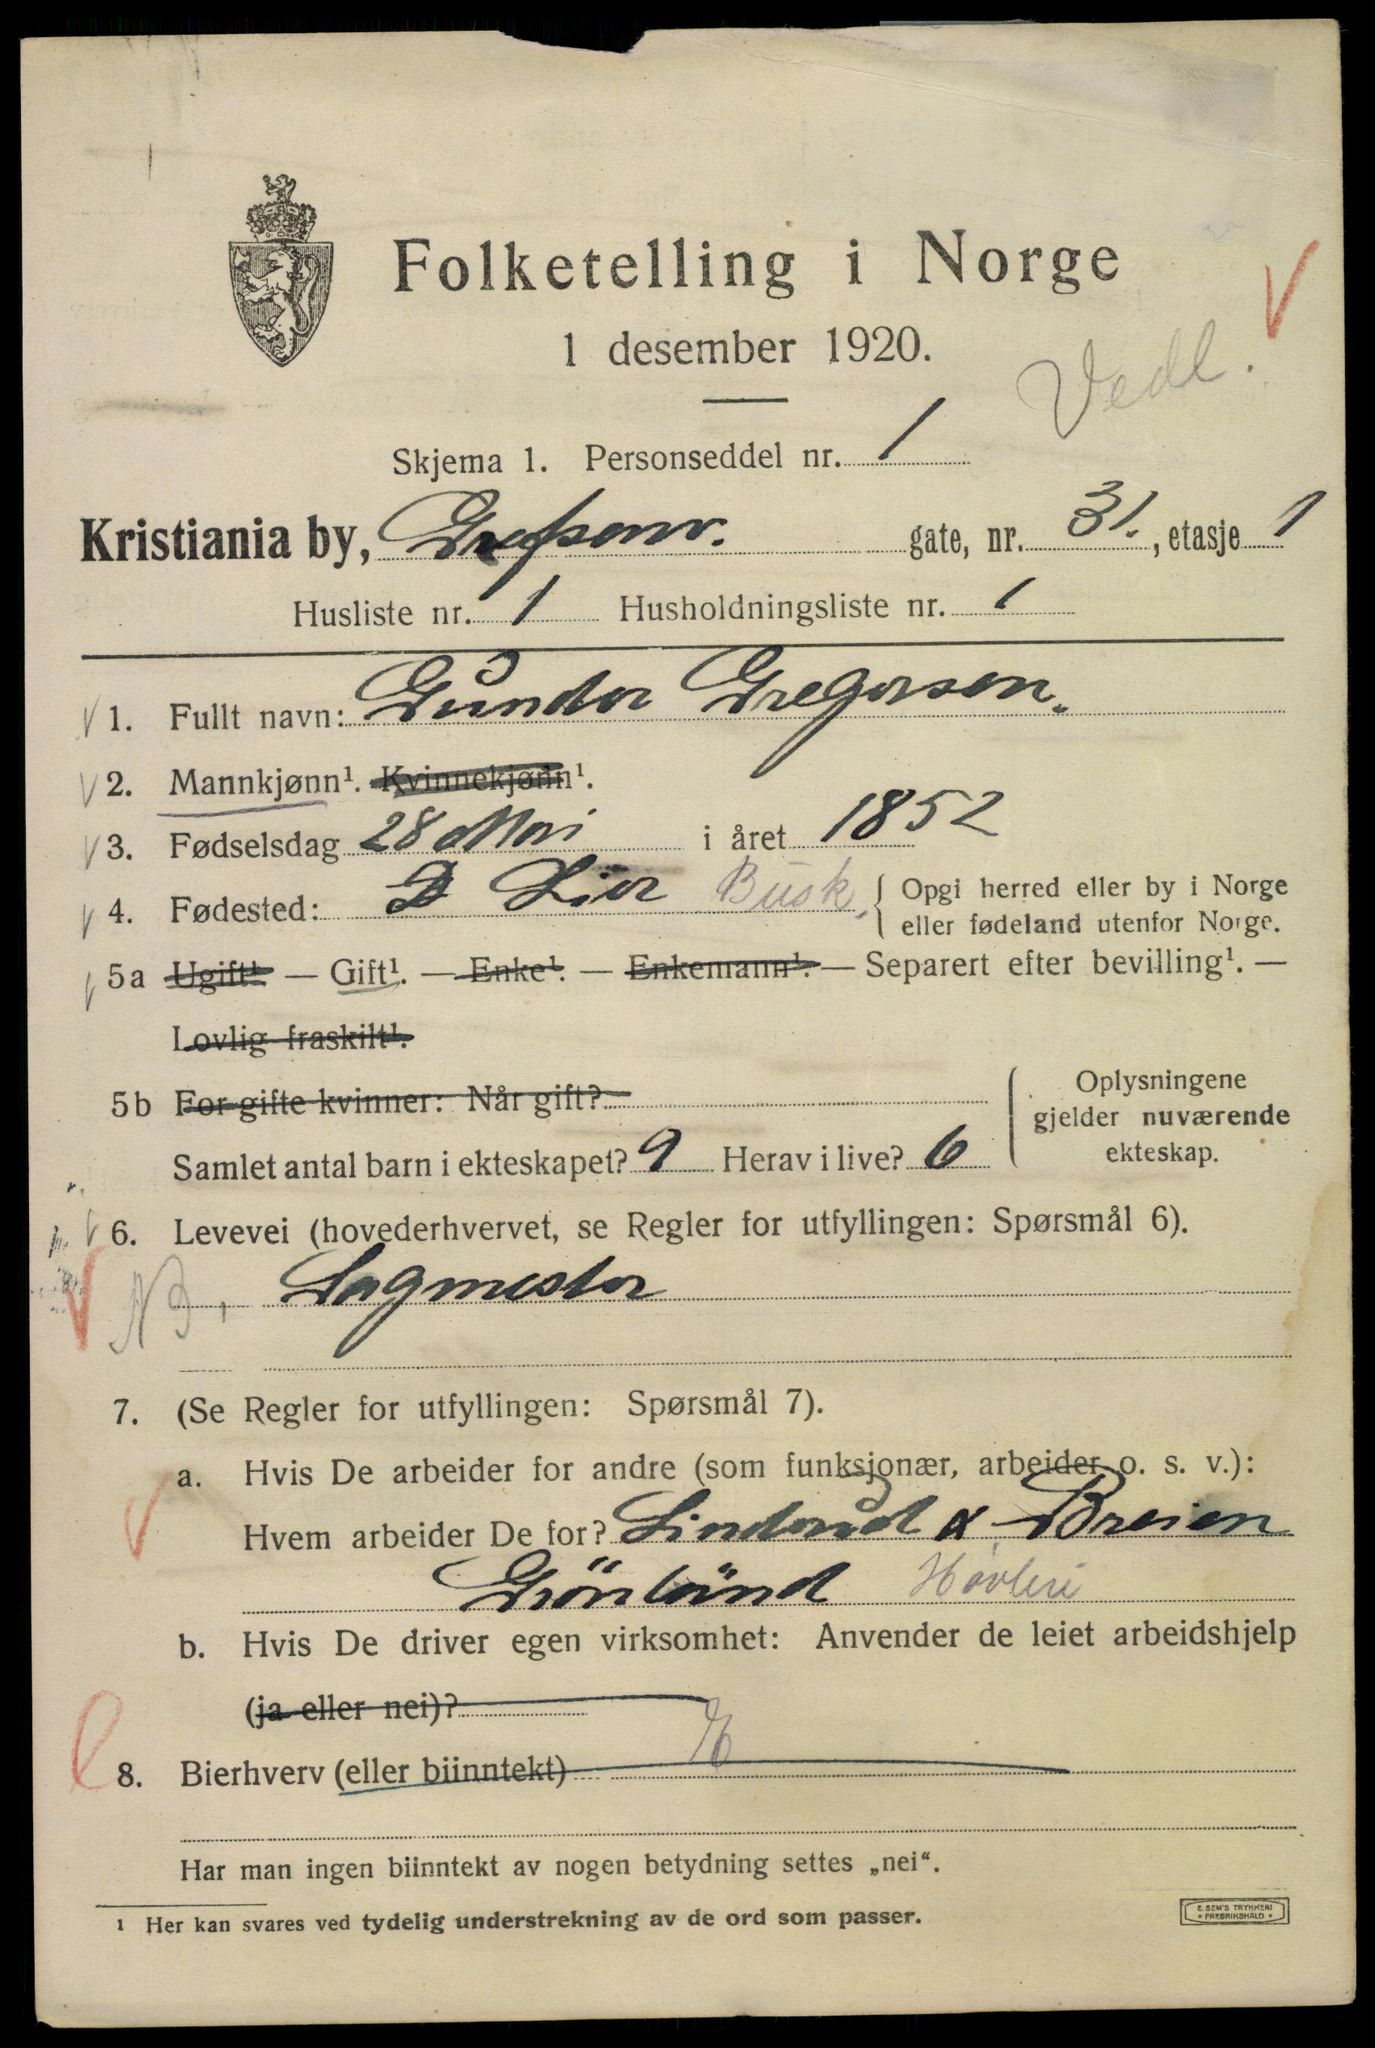 Folketelling i Norge
1 desember 1920.
Vedl.
Skjema 1. Personseddel nr. 1
Kristiania by, Grefsenv. gate, nr. 31., etasje 1
Husliste nr. 1 Husholdningsliste nr. 1
1. Fullt navn: Gundor Gregorsen.
2. Mannkjønn¹. Kvinnekjønn¹.
3. Fødselsdag 28 Mai i året 1852
4. Fødested: Lier Busk. { Opgi herred eller by i Norge
eller fødeland utenfor Norge.
5a Ugift¹ — Gift¹. — Enke¹. — Enkemann¹. — Separert efter bevilling¹. —
Lovlig fraskilt¹.
5b For gifte kvinner: Når gift?
Samlet antal barn i ekteskapet? 9 Herav i live? 6
Oplysningene
gjelder nuværende
ekteskap.
6. Levevei (hovederhvervet, se Regler for utfyllingen: Spørsmål 6).
NB, Sagmester
7. (Se Regler for utfyllingen: Spørsmål 7).
a. Hvis De arbeider for andre (som funksjonær, arbeider o. s. v.):
Hvem arbeider De for? Lindrud & Breien
Grönlånd Høvleri
b. Hvis De driver egen virksomhet: Anvender de leiet arbeidshjelp
(ja eller nei)?
8. Bierhverv (eller biinntekt)
Har man ingen biinntekt av nogen betydning settes „nei“.
¹ Her kan svares ved tydelig understrekning av de ord som passer.
E. SEM'S TRYKKERI
• FREDRIKSHALD •